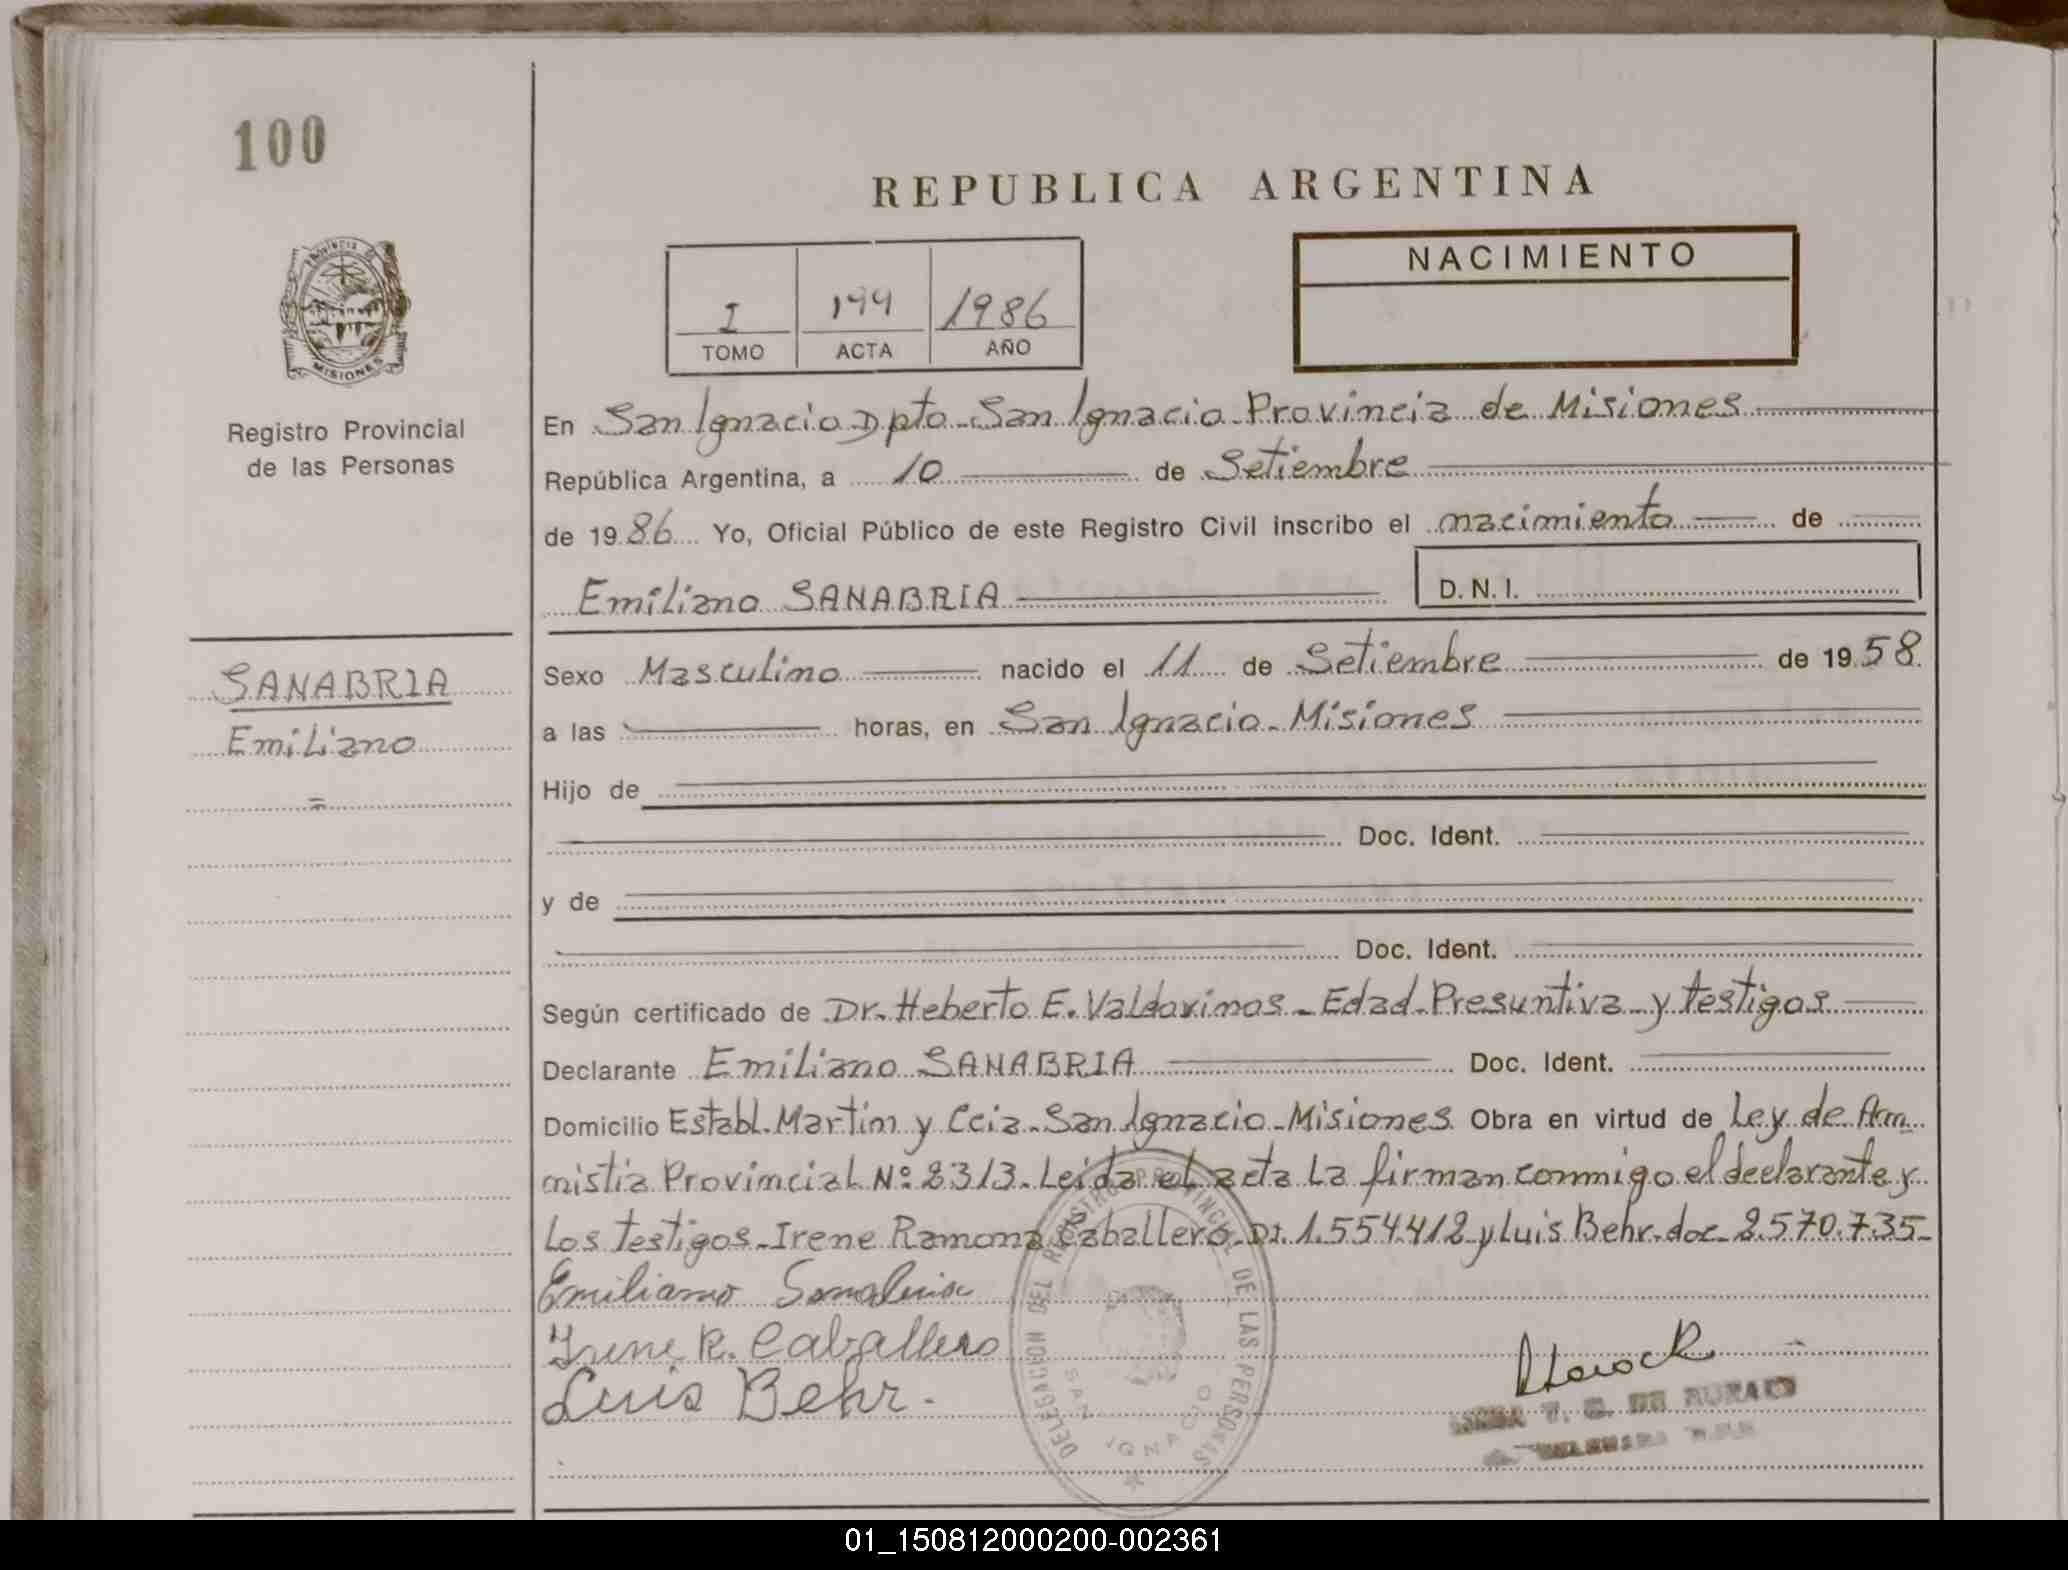 100
REPUBLICA ARGENTINA
NACIMIENTO
I 199 1986
TOMO ACTA AÑO
Provincia de
MISIONES
Registro Provincial
de las Personas
En San Ignacio Dpto- San Ignacio- Provincia de Misiones
República Argentina, a 10 de Setiembre
de 1986 Yo, Oficial Público de este Registro Civil inscribo el nacimiento de
Emiliano SANABRIA D.N.I.
SANABRIA
Emiliano
=
Sexo Masculino nacido el 11 de Setiembre de 1958
a las horas, en San Ignacio- Misiones
Hijo de
Doc. Ident.
y de
Doc. Ident.
Según certificado de Dr. Heberto E. Valdovinos- Edad Presuntiva y testigos
Declarante Emiliano SANABRIA Doc. Ident.
Domicilio Establ. Martin y Ccia- San Ignacio- Misiones Obra en virtud de Ley de Am
nistia Provincial Nº 2313- Leida el acta la firman conmigo el declarante y
los testigos- Irene Ramona Caballero DI. 1.554.412 y Luis Behr- doc- 2.570.735-
Emiliano Sanabria
Irene R. Caballero
Luis Behr.
DELEGACION DEL REGISTRO PROVINCIAL DE LAS PERSONAS
SAN IGNACIO
01_150812000200-002361